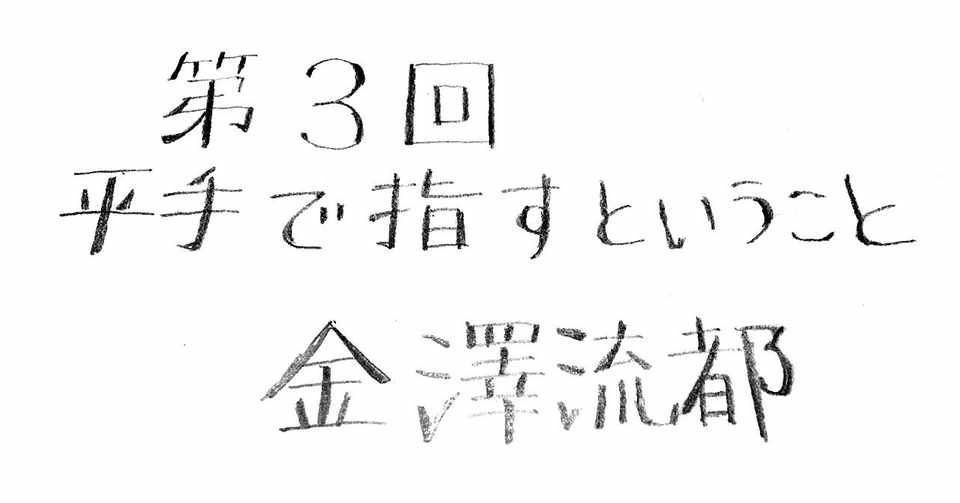 第3回
平手で指すということ
金澤流都